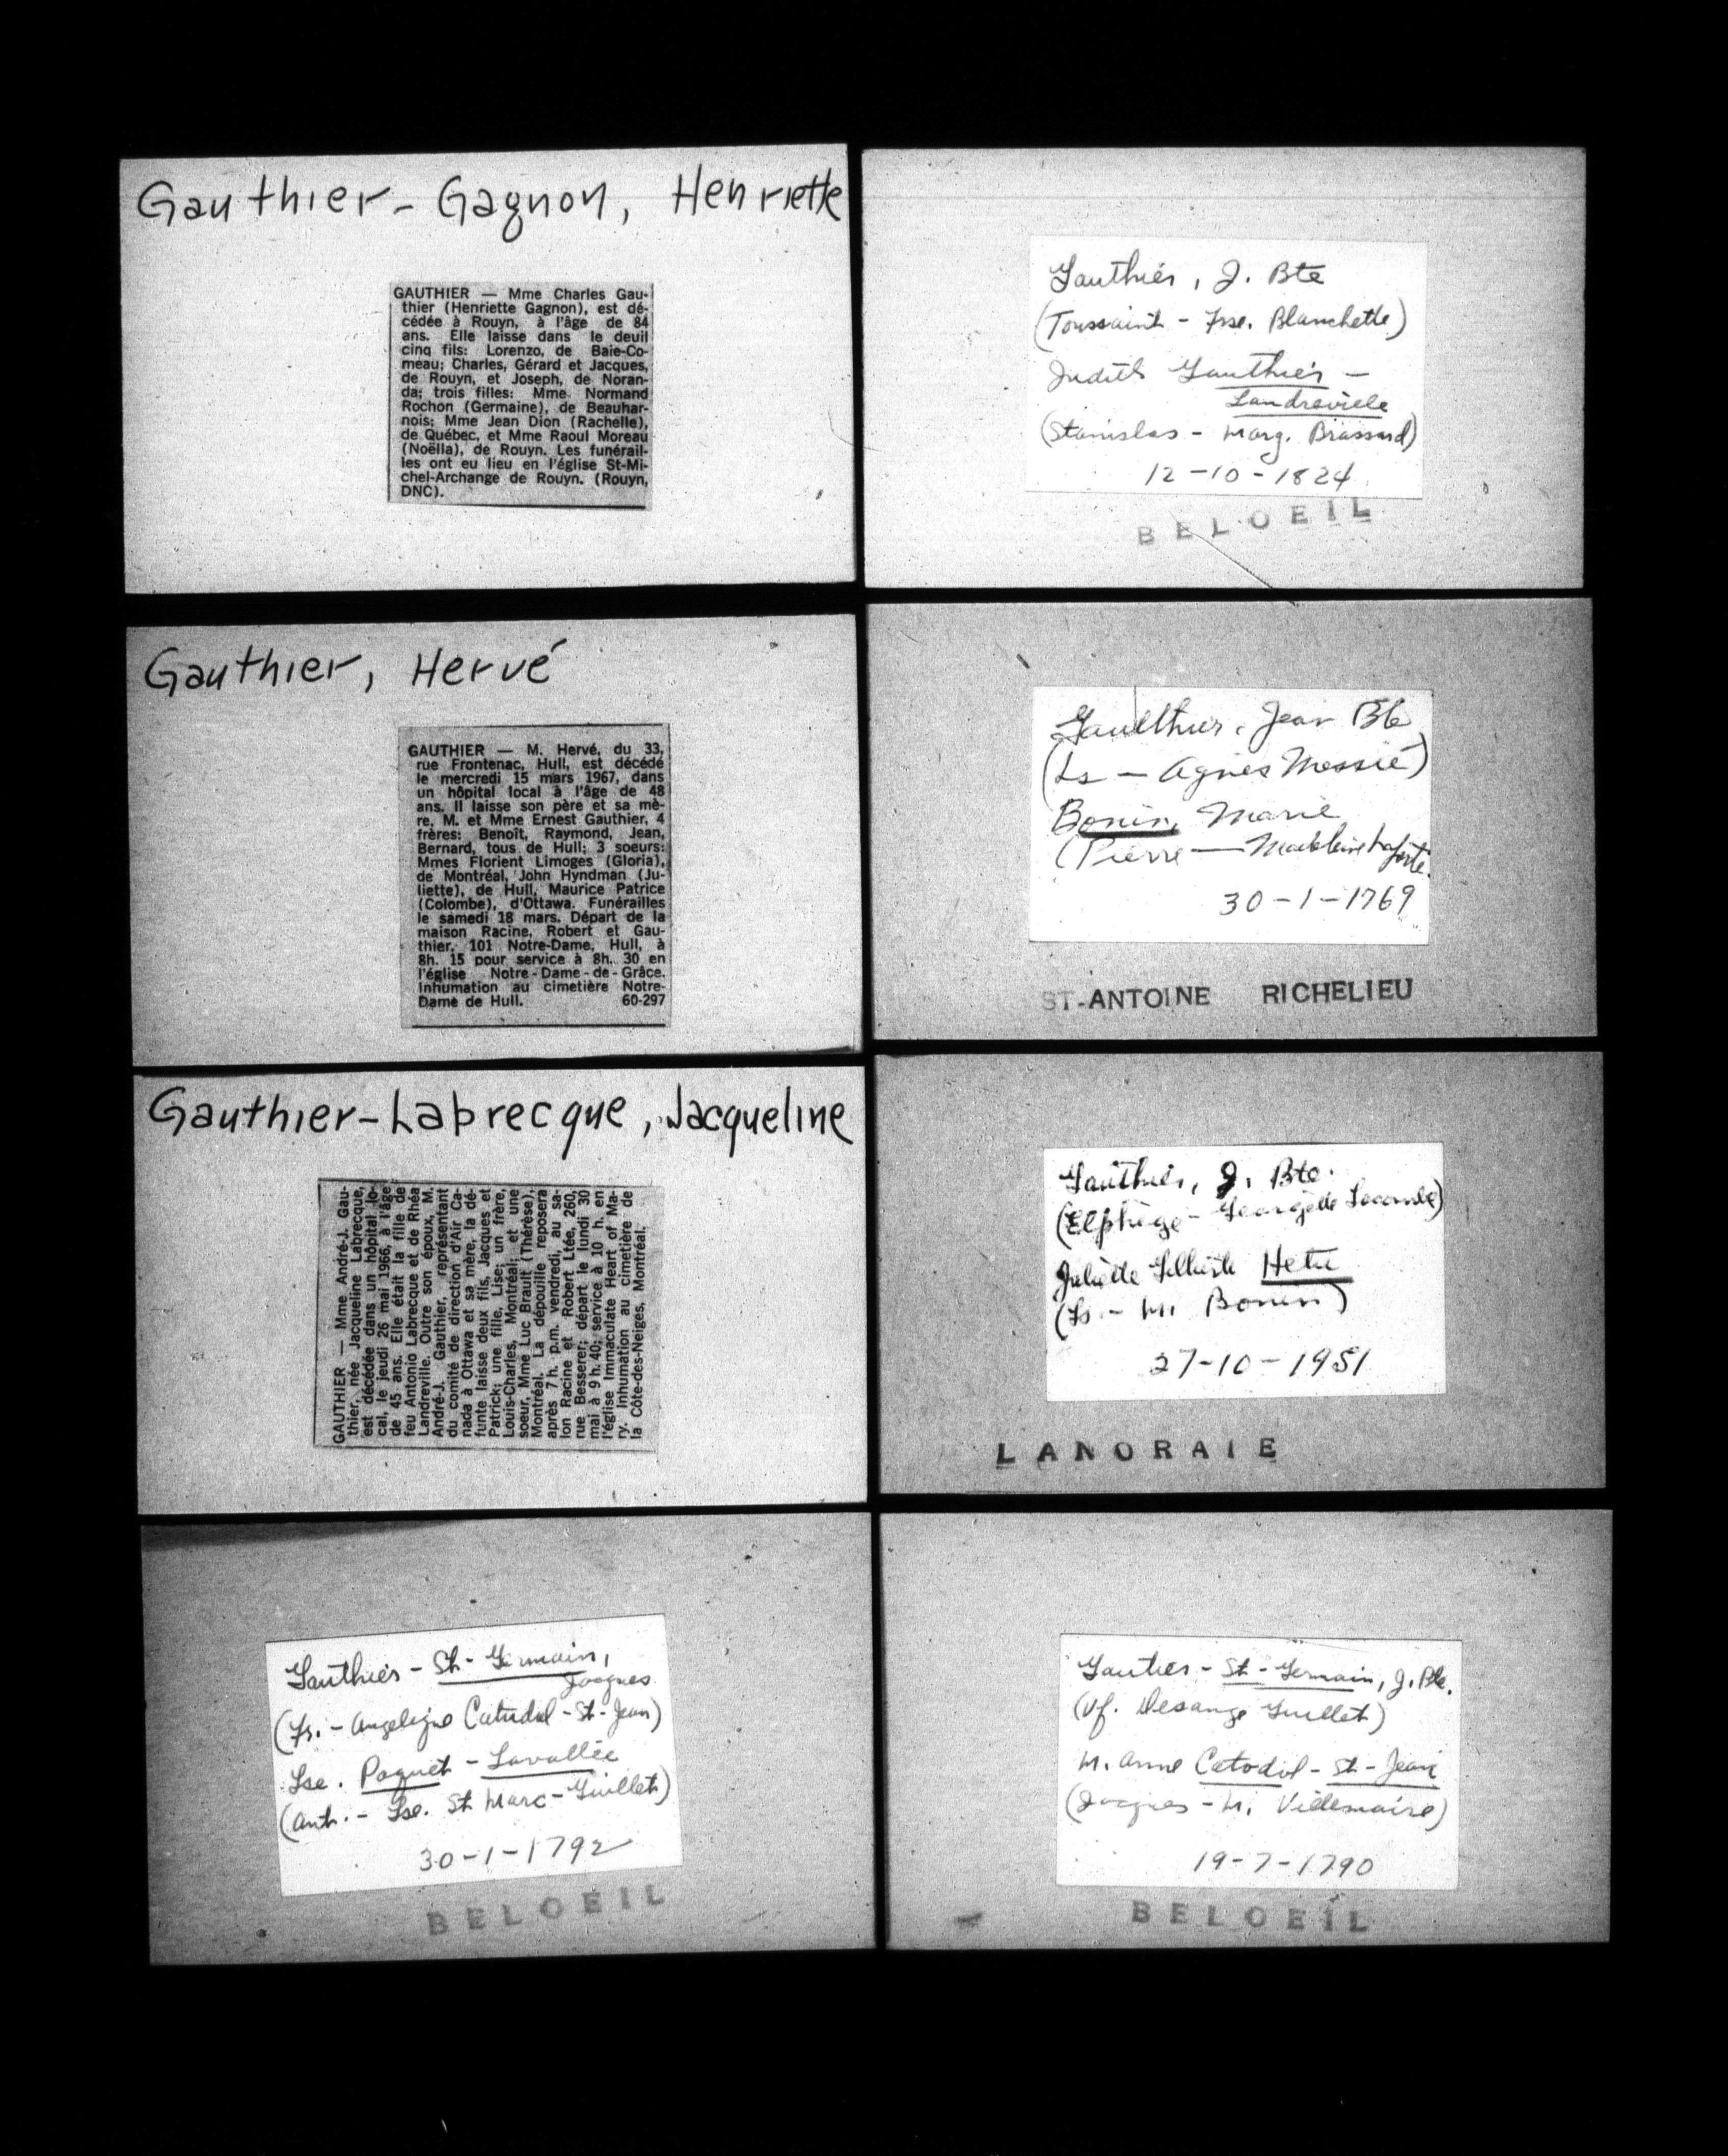 Gauthier - Gagnon, Henriette
GAUTHIER — Mme Charles Gau-
thier (Henriette Gagnon), est dé-
cédée à Rouyn, à l'âge de 84
ans. Elle laisse dans le deuil
cinq fils: Lorenzo, de Baie-Co-
meau; Charles, Gérard et Jacques,
de Rouyn, et Joseph, de Noran-
da; trois filles: Mme Normand
Rochon (Germaine), de Beauhar-
nois; Mme Jean Dion (Rachelle),
de Québec, et Mme Raoul Moreau
(Noëlla), de Rouyn. Les funérail-
les ont eu lieu en l'église St-Mi-
chel-Archange de Rouyn. (Rouyn,
DNC).
Gauthier, J. Bte
(Toussaint - Frse. Blanchette)
Judith Gauthier -
Landreville
(Stanislas - Marg. Brassard)
12-10-1824
BELOEIL
Gauthier, Hervé
GAUTHIER — M. Hervé, du 33,
rue Frontenac, Hull, est décédé
le mercredi 15 mars 1967, dans
un hôpital local à l'âge de 48
ans. Il laisse son père et sa mè-
re, M. et Mme Ernest Gauthier, 4
frères: Benoît, Raymond, Jean,
Bernard, tous de Hull; 3 soeurs:
Mmes Florient Limoges (Gloria),
de Montréal, John Hyndman (Ju-
liette), de Hull, Maurice Patrice
(Colombe), d'Ottawa. Funérailles
le samedi 18 mars. Départ de la
maison Racine, Robert et Gau-
thier, 101 Notre-Dame, Hull, à
8h. 15 pour service à 8h. 30 en
l'église Notre-Dame-de-Grâce.
Inhumation au cimetière Notre-
Dame de Hull. 60-297
Gaulthier, Jean Bte
(Ls — Agnes Messié)
Bonin, Marie
(Pierre — Madeleine Laforte
30-1-1769
ST-ANTOINE RICHELIEU
Gauthier-Labrecque, Jacqueline
GAUTHIER — Mme André-J. Gau-
thier, née Jacqueline Labrecque,
est décédée dans un hôpital lo-
cal, le jeudi 26 mai 1966, à l'âge
de 45 ans. Elle était la fille de
feu Antonio Labrecque et de Rhéa
Landreville. Outre son époux, M.
André-J. Gauthier, représentant
du comité de direction d'Air Ca-
nada à Ottawa et sa mère, la dé-
funte laisse deux fils, Jacques et
Patrick; une fille, Lise; un frère,
Louis-Charles, Montréal; et une
soeur, Mme Luc Brault (Thérèse),
Montréal. La dépouille reposera
après 7 h. p.m. vendredi, au sa-
lon Racine et Robert Ltée, 260,
rue Besserer; départ le lundi 30
mai à 9 h. 40; service à 10 h. en
l'église Immaculate Heart of Ma-
ry. Inhumation au cimetière de
la Côte-des-Neiges, Montréal.
Gauthier, J. Bte.
(Elphège - Georgette Lacombe)
Juliette Hetu
(Ls. - M. Bonin)
27-10-1951
LANORAIE
Gauthier - St-Germain,
Jacques
(Fr. - Angelique Catudal - St-Jean)
Lse. Paquet - Lavallée
(Ant. - Lse. St Marc - Guillet)
30-1-1792
BELOEIL
Gautier - St-Germain, J. Bte.
(Vf. Desange Guillet)
M. Anne Catodil - St-Jean
(Jacques - M. Villemaire)
19-7-1790
BELOEIL